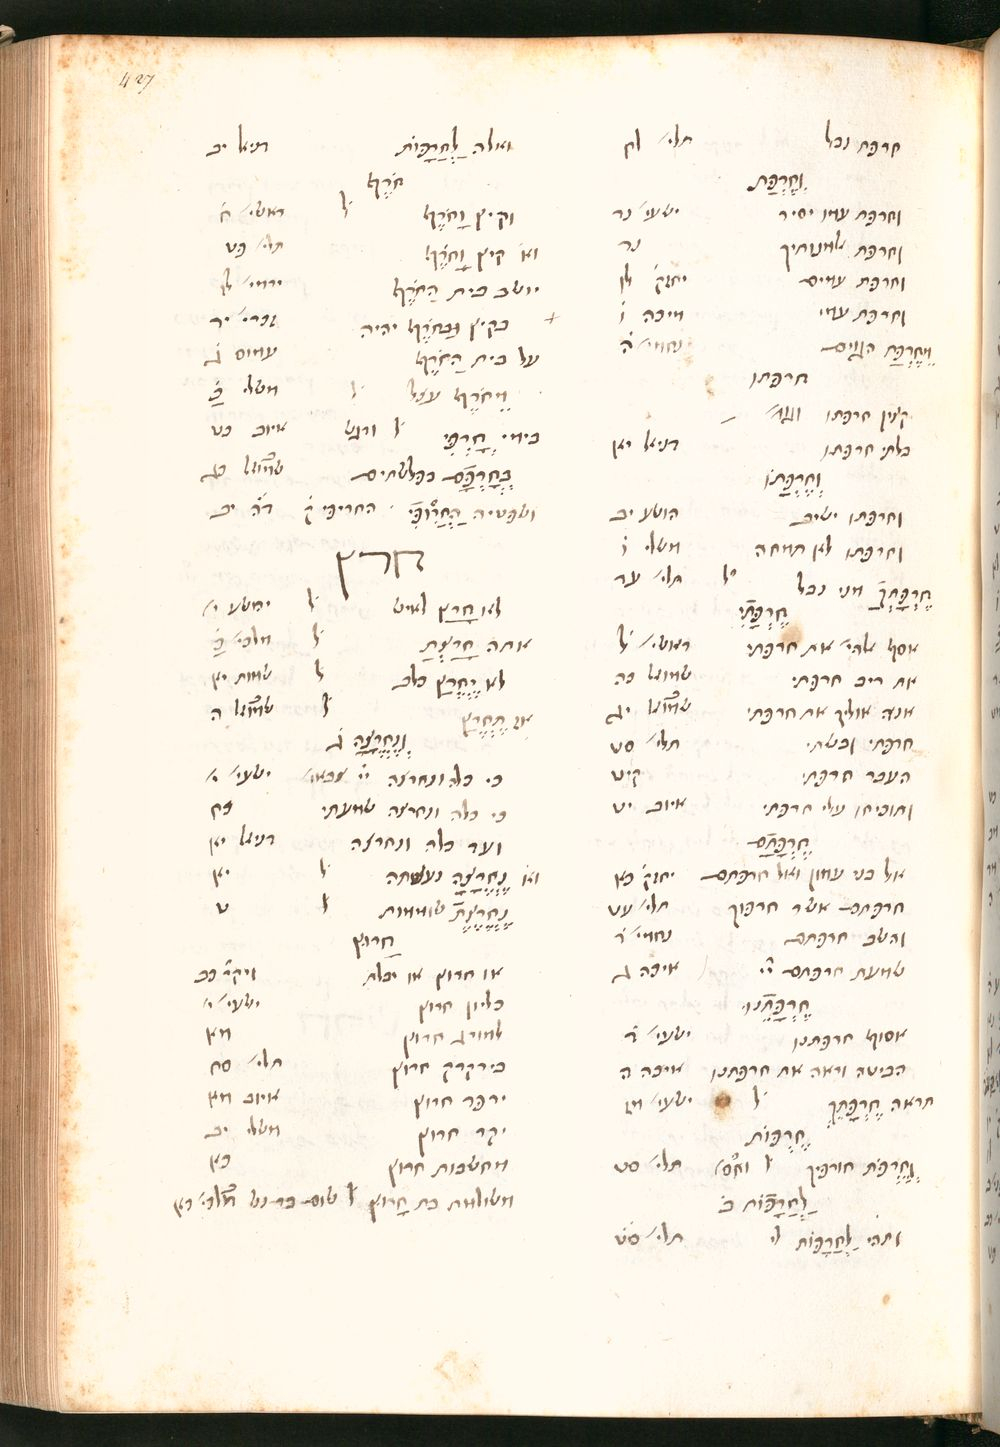 427
חרפת נבל תלי׳ לח
וְחֶרְפַּת
וחרפת עמו יסיר ישעי׳ כה
וחרפת אלמנותיך נד
וחרפת עמים יחזק׳ לו
וחרפת עמי מיכה ו
מֵחֶרְפַּת הגוים נחמי׳ ה
חרפתו
קצין חרפתו
בלתי חרפתו דניאל יא
וְחֶרְפָּתוֹ
וחרפתו ישיב הושע יב
וחרפתו לא תמחה משלי ו
חֶרְפָּתְךָ מני נבל ל תלי׳ עד
חֶרְפָּתִי
אסף אלהי׳ את חרפתי ראשי׳ ל
את ריב חרפתי שמואל כה
אנה אוליך את חרפתי שמואל יג
חרפתי ובשתי תלי׳ סט
העבר חרפתי קיט
ותוכיחו עלי חרפתי איוב יט
חֶרְפָּתָם
אל בני עמון ואל חרפתם יחזק׳ כא
חרפתם אשר חרפוך תלי׳ עט
והשב חרפתם נחמי׳ ג
שמעת חרפתם יי איכה ג
חֶרְפָּתֵנוּ
אסוף חרפתנו ישעי׳ ד
הביטה וראה את חרפתנו איכה ה
תראה חֶרְפָּתֵךְ ל ישעי׳ מז
חֶרְפּוֹת
וְחֶרְפּוֹת חורפיך ל תלי׳ סט
לַחֲרָפוֹת ב
ותהי לַחֲרָפוֹת לי תלי׳ סט
ואלה לַחֲרָפוֹת דניאל יב
חֹרֶף
וקיץ וָחֹרֶף ל ראשי׳ ח
קיץ וָחֹרֶף תלי׳ עד
יושב בית הַחֹרֶף ירמי׳ לו
בקיץ וּבָחֹרֶף יהיה זכרי׳ יד
על בית הַחֹרֶף עמוס ג
מֵחֹרֶף עצל ל משלי כ
בימי חָרְפִּי ל איוב כט
בְּחָרְפָם בפלשתים שמואל כג
ושפטיה הַחֲרוּפִי החריפי ק׳ דה יב
חרץ
לא חָרַץ לאיש ל יהושע י
אתה חָרָצְתָּ ל מלכי׳ כ
לא יֶחֱרַץ כלב ל שמות יא
אז תֶּחֱרָץ ל שמואל ה
וְנֶחֱרָצָה ג
כי כלה ונחרצה יי צבאו׳ ישעי׳ י
כי כלה ונחרצה שמעתי כח
ועד כלה ונחרצה דניאל ט
נֶחֱרָצָה נעשתה ל יא
נֶחֱרֶצֶת שוממות ל ט
חָרוּץ
או חרוץ או יבלת ויקר׳ כב
כליון חרוץ ישעי׳ י
למורג חרוץ מא
בירקרק חרוץ תלי׳ סח
ירפד חרוץ איוב מא
יקר חרוץ משלי יב
מחשבות חרוץ כא
משולמת בת חָרוּץ ל שום בר נש מלכי׳ כא